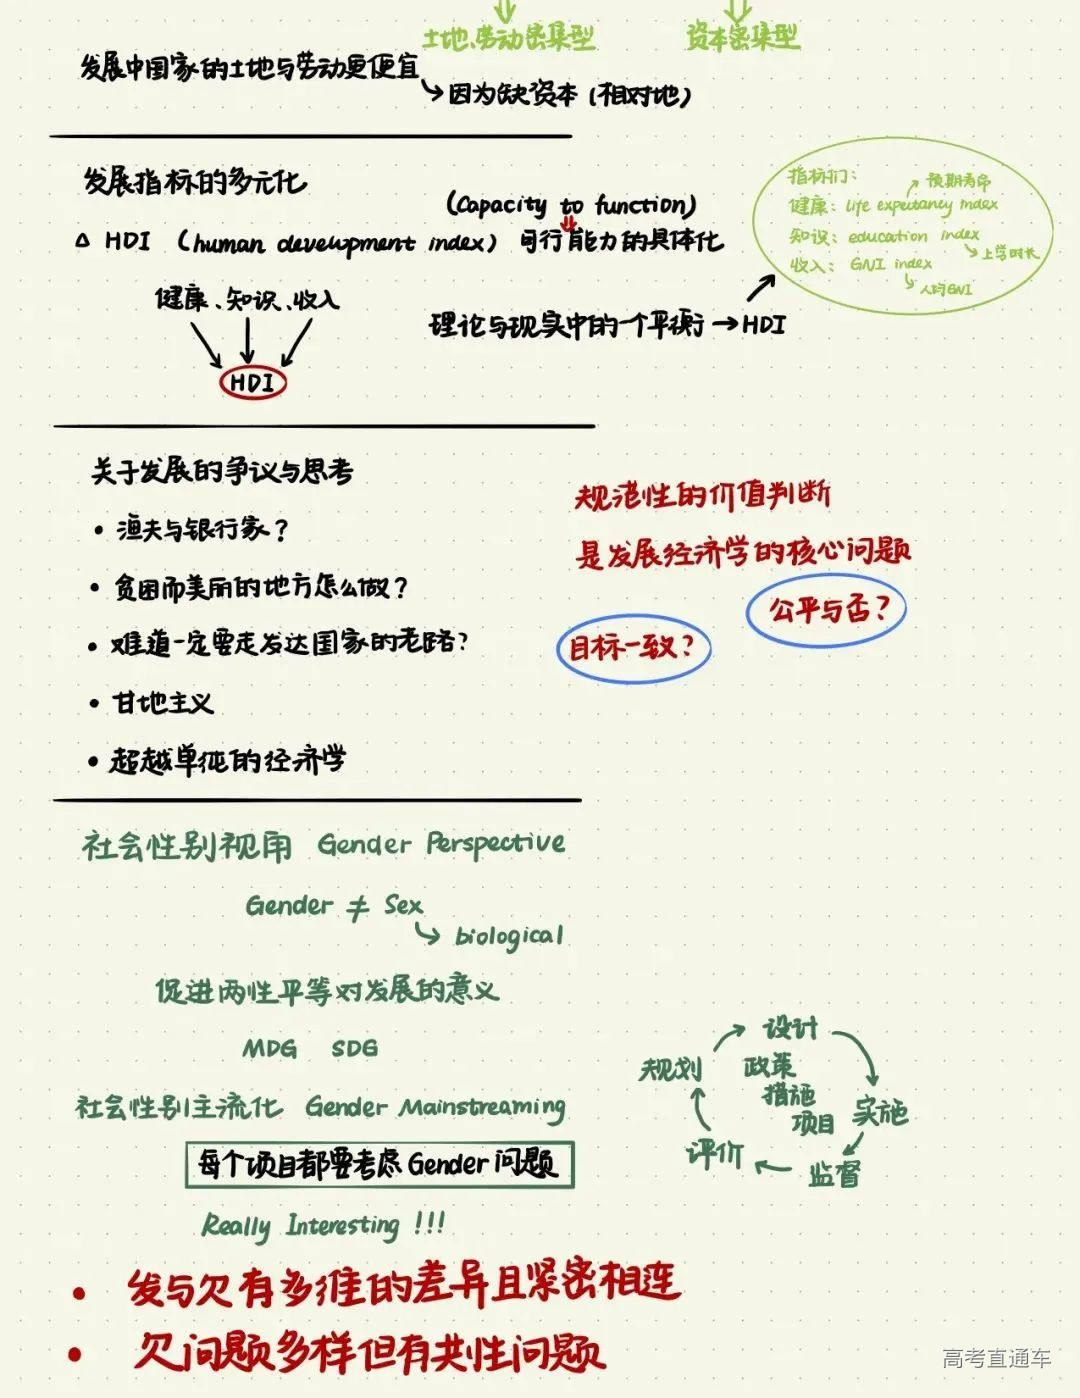 土地、劳动密集型
资本密集型
发展中国家的土地与劳动更便宜
因为缺资本（相对地）
发展指标的多元化
(Capacity to function)
△ HDI （human development index） 可行能力的具体化
健康、知识、收入
HDI
理论与现实中的一个平衡→HDI
指标们：
预期寿命
健康：life expectancy index
知识：education index
上学时长
收入：GNI index
人均GNI
关于发展的争议与思考
• 渔夫与银行家？
• 贫困而美丽的地方怎么做？
• 难道一定要走发达国家的老路？
• 甘地主义
• 超越单纯的经济学
规范性的价值判断
是发展经济学的核心问题
公平与否？
目标一致？
社会性别视角 Gender Perspective
Gender ≠ Sex
biological
促进两性平等对发展的意义
MDG SDG
社会性别主流化 Gender Mainstreaming
每个项目都要考虑Gender问题
Really Interesting !!!
设计
规划
政策
措施
项目
实施
评价
监督
• 发与欠有多维的差异且紧密相连
• 欠问题多样但有共性问题
高考直通车